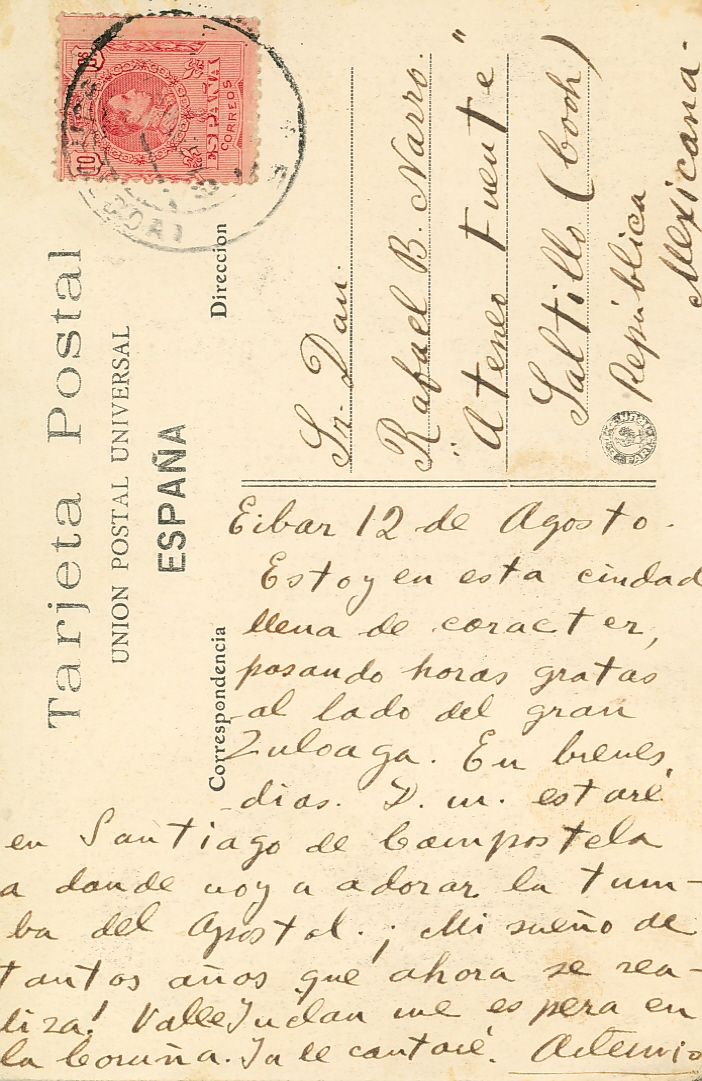 Tarjeta Postal
UNION POSTAL UNIVERSAL
ESPAÑA
Dirección
ESPAÑA
CORREOS
10
Sr. Dan.
Rafael B. Narro.
"Ateneo Fuente"
Saltillo (Cooh)
República
Mexicana.
Correspondencia
Eibar 12 de Agosto.
Estoy en esta ciudad
llena de caracter,
pasando horas gratas
al lado del gran
Zuloaga. En breves
dias. D. m. estaré
en Santiago de Compostela
a donde voy a adorar la tum-
ba del Apostol. ¡Mi sueño de
tantos años que ahora se rea-
liza! Valle Inclan me espera en
la Coruña. Ya te contaré. Artemio